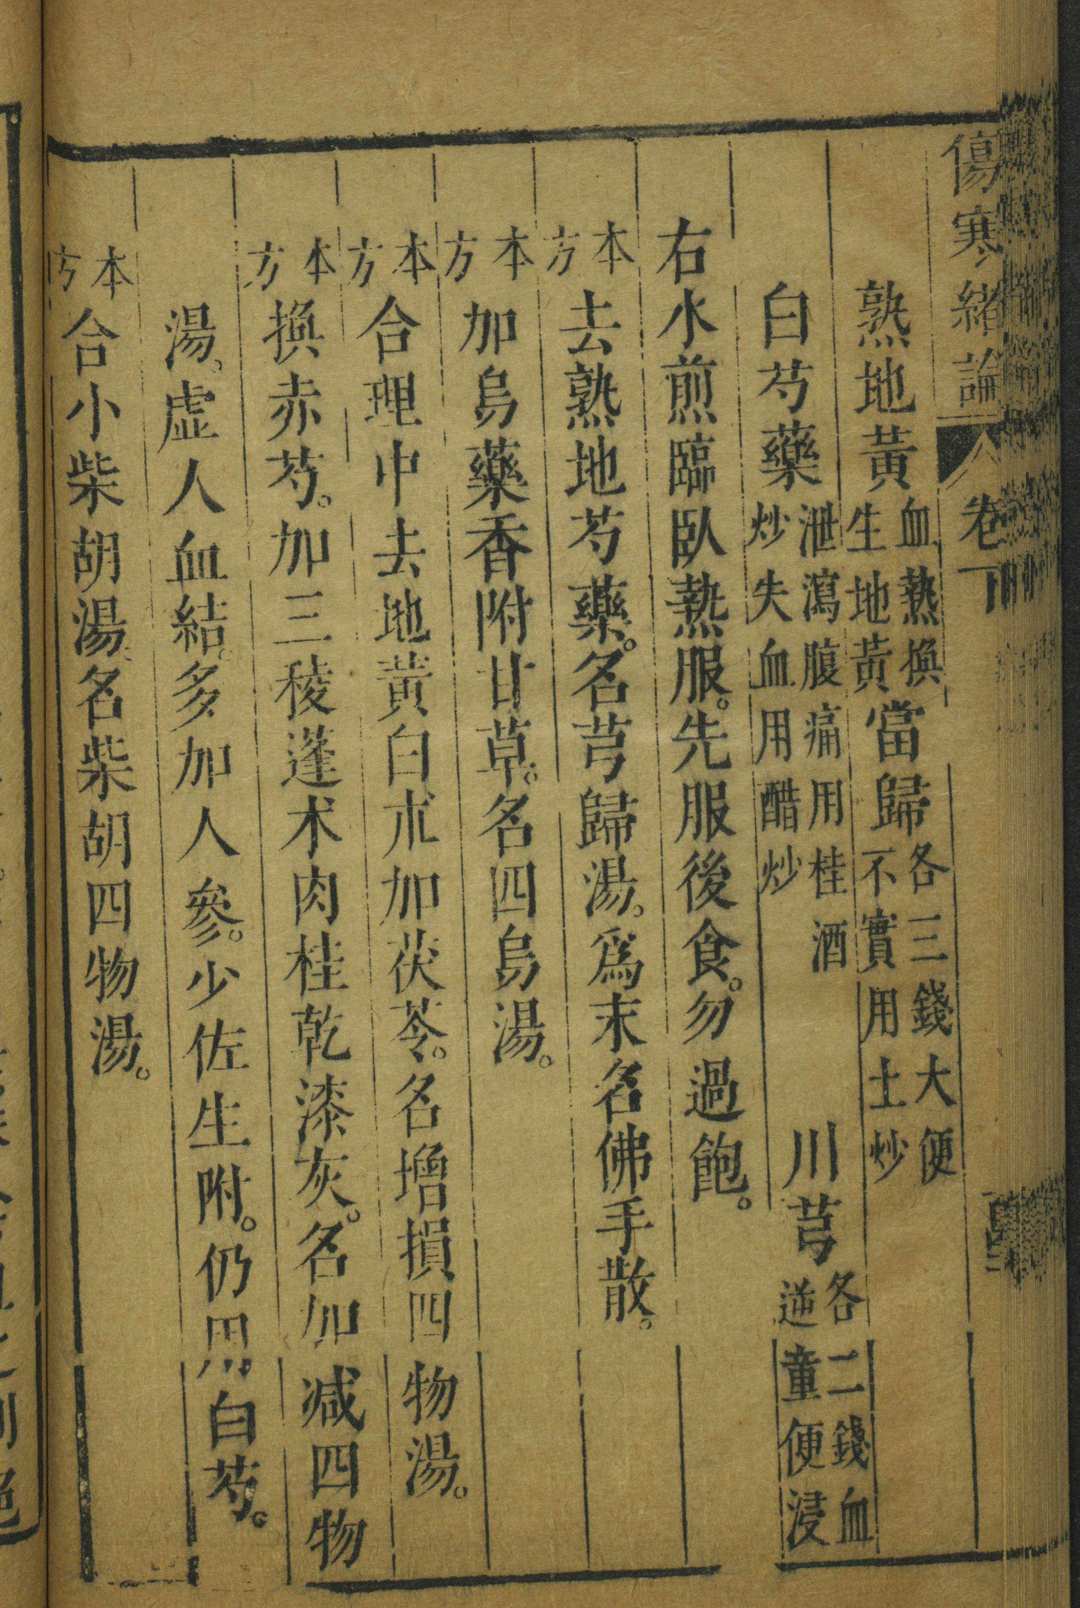 傷寒緒論 卷下
熟地黃血熱換生地黃當歸各三錢大便不實用土炒
白芍藥泄瀉腹痛用桂酒炒失血用醋炒 川芎各二錢血逆童便浸
右水煎臨臥熱服。先服後食。勿過飽。
本方去熟地芍藥。名芎歸湯。爲末名佛手散。
本方加烏藥香附甘草。名四烏湯。
本方合理中去地黃白朮加茯苓。名增損四物湯。
本方換赤芍。加三稜蓬术肉桂乾漆灰。名加減四物
湯。虛人血結。多加人參。少佐生附。仍用白芍。
本方合小柴胡湯名柴胡四物湯。